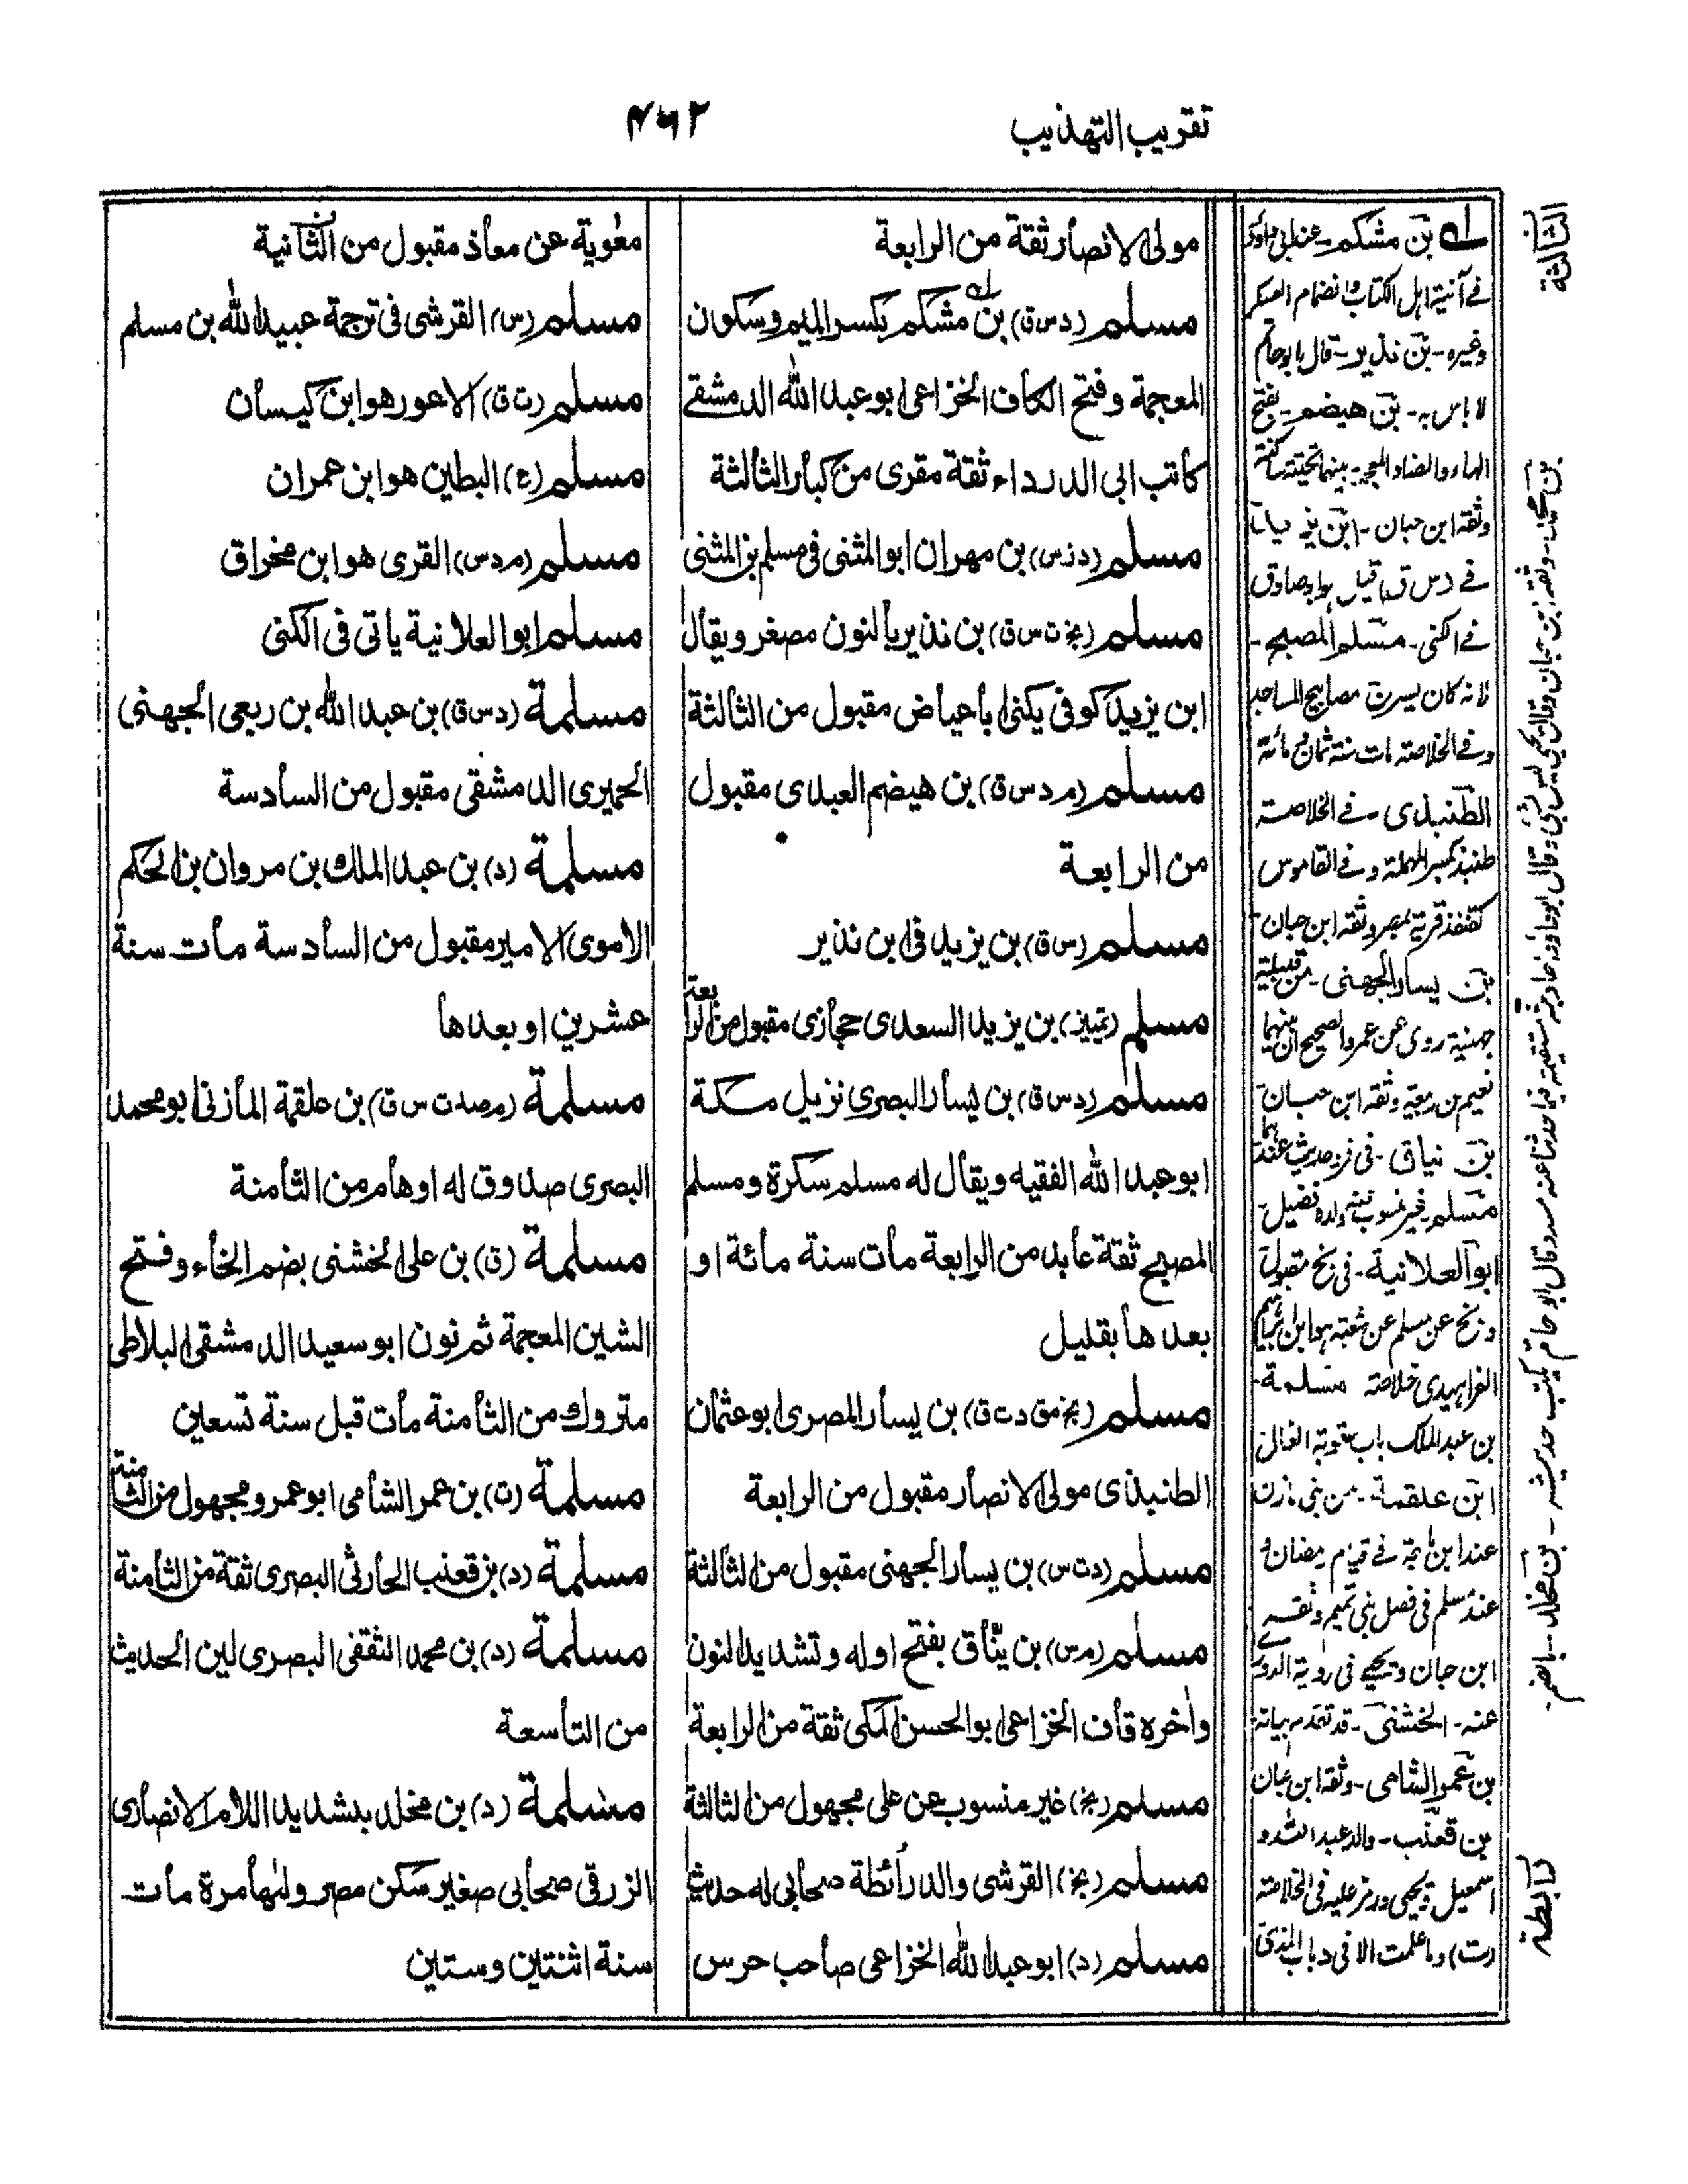 تقريب التهذيب
۴۶۲
مولى الانصار ثقة من الرابعة
مسلم (د س ق) بن مشكم بكسر الميم وسكون
المعجمة وفتح الكاف الخزاعى ابو عبد الله الدمشقے
كاتب ابى الدرداء ثقة مقرى من كبار الثالثة
مسلم (د ز س) بن مهران ابو المثنى فى مسلم بن المثنى
مسلم (بخ ت س ق) بن نذير بالنون مصغر ويقال
ابن يزيد كوفى يكنى ابا عياض مقبول من الثالثة
مسلم (م د س ق) بن هيضم العبدى مقبول
من الرابعة
مسلم (س ق) بن يزيد فى ابن نذير
مسلم (تمييز) بن يزيد السعدى حجازى مقبول من الرابعة
مسلم (د س ق) بن يسار البصرى نزيل مكة
ابو عبد الله الفقيه ويقال له مسلم سكرة ومسلم
المصبح ثقة عابد من الرابعة مات سنة مائة او
بعدها بقليل
مسلم (بخ مق د ت ق) بن يسار المصرى ابو عثمان
الطنبذى مولى الانصار مقبول من الرابعة
مسلم (د ت س) بن يسار الجهنى مقبول من الثالثة
مسلم (م س) بن ينّاق بفتح اوله وتشديد النون
واخره قاف الخزاعى ابو الحسن المكى ثقة من الرابعة
مسلم (بخ) غير منسوب عن على مجهول من الثالثة
مسلم (بخ) القرشى والد رائطة صحابى له حديث
مسلم (د) ابو عبد الله الخزاعى صاحب حرس
معوية عن معاذ مقبول من الثانية
مسلم (س) القرشى فى ترجمة عبيد الله بن مسلم
مسلم (ت ق) الاعور هو ابن كيسان
مسلم (ع) البطين هو ابن عمران
مسلم (م د س) القرى هو ابن مخراق
مسلم ابو العلانية ياتى فى الكنى
مسلمة (د س ق) بن عبد الله بن ربعى الجهنى
الحميرى الدمشقى مقبول من السادسة
مسلمة (د) بن عبد الملك بن مروان بن الحكم
الاموى الامير مقبول من السادسة مات سنة
عشرين او بعدها
مسلمة (م صد ت س ق) بن علقمة المازنى ابو محمد
البصرى صدوق له اوهام من الثامنة
مسلمة (ق) بن على الخشنى بضم الخاء وفتح
الشين المعجمة ثم نون ابو سعيد الدمشقى البلاطى
متروك من الثامنة مات قبل سنة تسعين
مسلمة (ت) بن عمر الشامى ابو عمرو مجهول من الثامنة
مسلمة (د) بن قعنب الحارثى البصرى ثقة من الثامنة
مسلمة (د) بن محمد الثقفى البصرى لين الحديث
من التاسعة
مسلمة (د) بن مخلد بتشديد اللام الانصارى
الزرقى صحابى صغير سكن مصر وليها مرة مات
سنة اثنتين وستين
بن مشكم - عند ابى داود
فے آنية اهل الكتاب وانضمام العسكر
وغيره - بن نذير - قال ابو حاتم
لا باس به - بن هيضم - بفتح
الهاء والضاد المعجمة بينهما تحتية ساكنة
وثقه ابن حبان - ابن يزيد
فے الكنى - مسلم المصبح -
لانه كان يسرج مصابيح المساجد
وفے الخلاصة مات سنة ثمان ومائة
الطنبذى - فے الخلاصة
طنبذ بكسر المهملة وفے القاموس
كقنفذ قرية بمصر وثقه ابن حبان -
بن يسار الجهنى - من قبيلة
جهينة روى عن عمر والصحيح ان بينهما
نعيم بن ربيعة وثقه ابن حبان -
مسلم - غير منسوب
ابو العلانية - فى بخ مقبول
الفراهيدى خلاصة مسلمة -
بن عبد الملك باب عقوبة الغال
ابن علقمة - من بنى مازن
عند ابن ماجة فے قيام رمضان و
عند مسلم فى فضل بنى تميم وثقه
ابن حبان ويحيے فى رواية الدورى
عنه - الخشنى - قد تقدم بيانه -
بن عمرو الشامى - وثقه ابن حبان
بن قعنب - والد عبد الله و
اسمعيل ويحيى ورمز عليه فى الخلاصة
(ت) وما علمت الا فى د باب المذى
الثالثة
رابطة